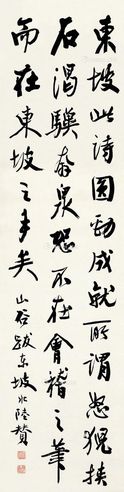 東坡此詩圆勁成就所謂怒猊抉
石渴驥奔泉恐不在會稽之筆
而在東坡之手矣 山谷跋東坡水陸贊